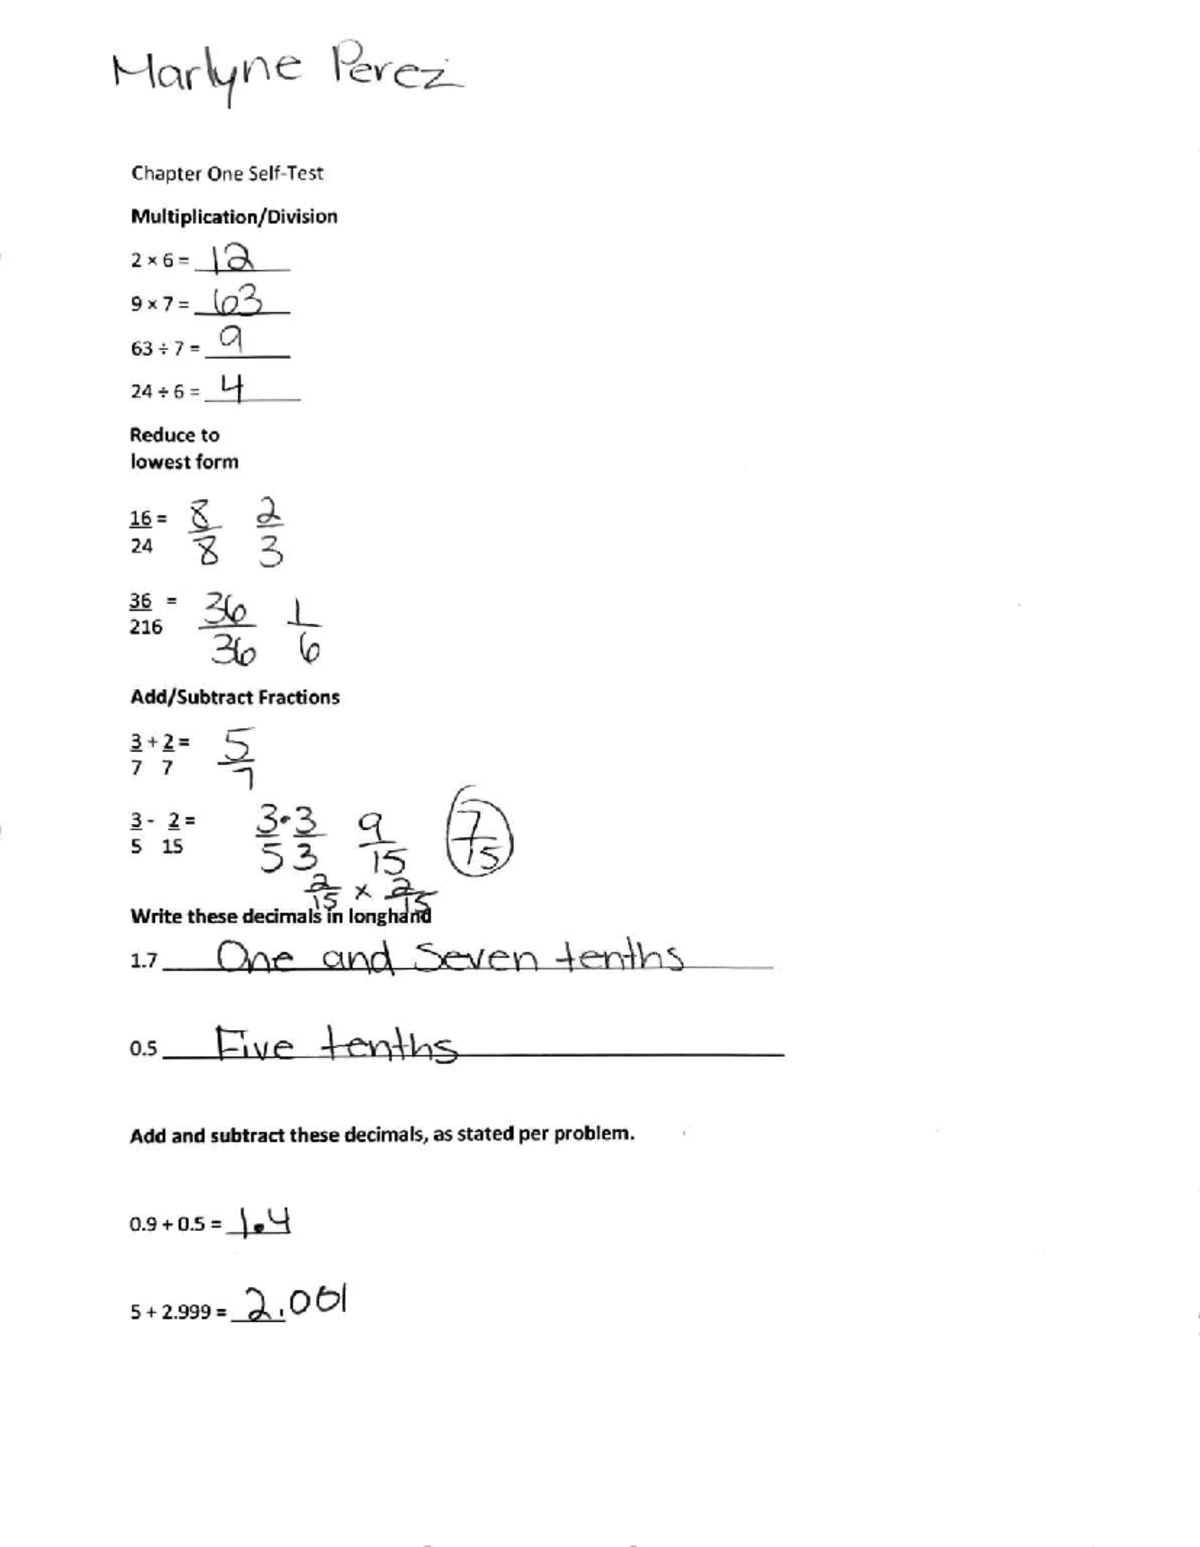 Marlyne Perez
Chapter One Self-Test
Multiplication/Division
2 × 6 = 12
9 × 7 = 63
63 ÷ 7 = 9
24 ÷ 6 = 4
Reduce to
lowest form
16 = 8 2
24 8 3
36 = 36 1
216 36 6
Add/Subtract Fractions
3 + 2 = 5
7 7 7
3 - 2 = 3 · 3 9 7
5 15 5 3 15 15
2 × 2
15 15
Write these decimals in longhand
1.7 One and Seven tenths
0.5 Five tenths
Add and subtract these decimals, as stated per problem.
0.9 + 0.5 = 1.4
5 + 2.999 = 2.001